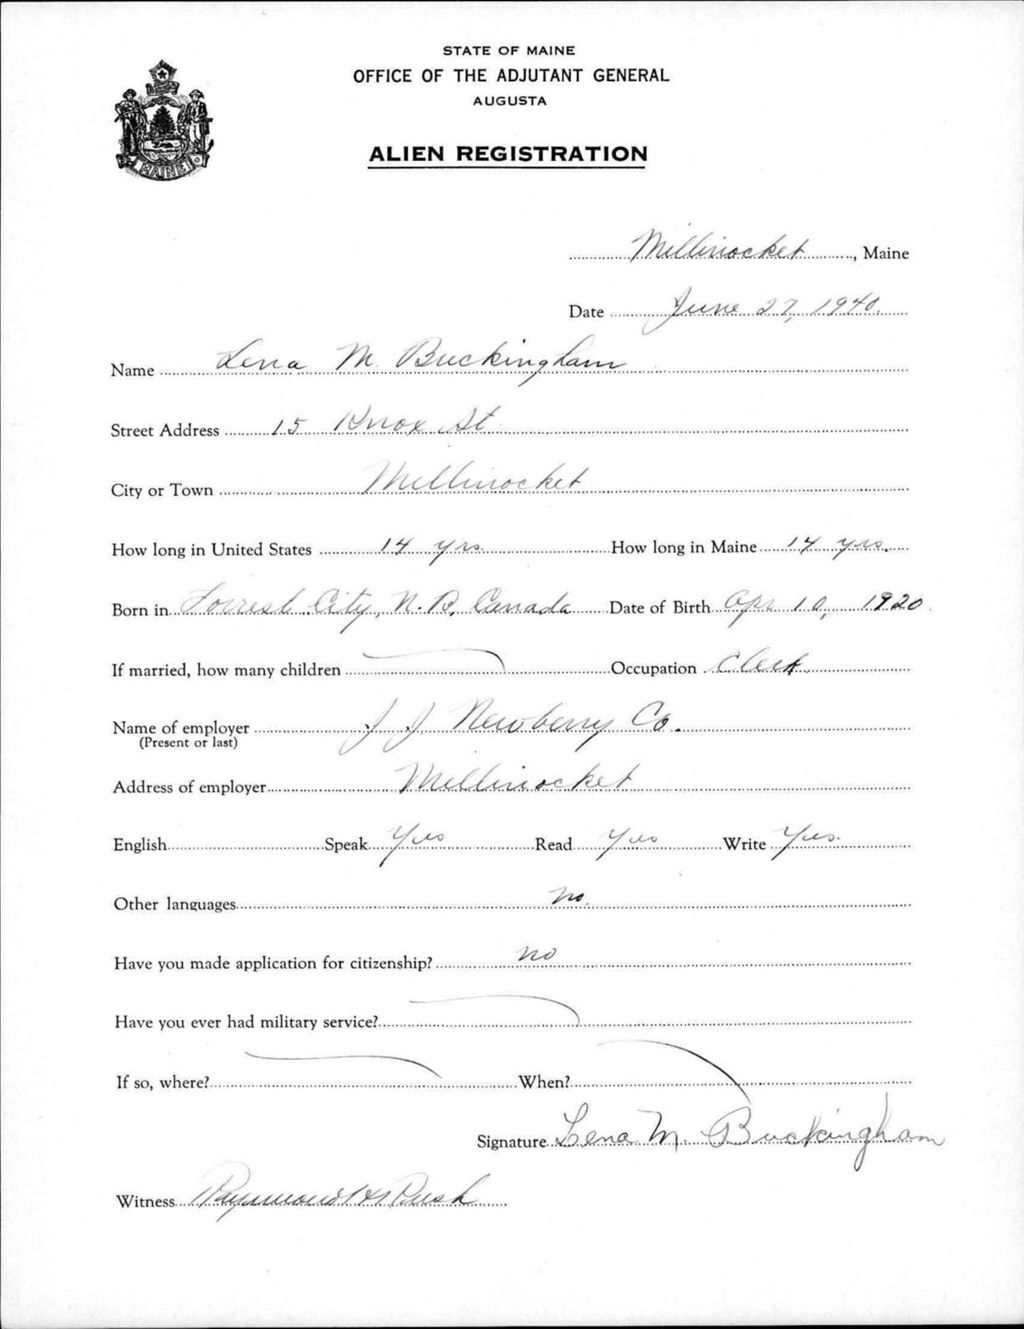 STATE OF MAINE
OFFICE OF THE ADJUTANT GENERAL
AUGUSTA
ALIEN REGISTRATION
MAINE
Millinocket, Maine
Date June 27, 1940.
Name Lena M. Buckingham
Street Address 15 Knox St
City or Town Millinocket
How long in United States 14 yrs. How long in Maine 14 yrs.
Born in Forrest City, N.B, Canada Date of Birth Apr 10, 1920
If married, how many children Occupation Clerk
Name of employer J J Newberry Co.
(Present or last)
Address of employer Millinocket
English Speak Yes Read Yes Write Yes.
Other languages no.
Have you made application for citizenship? no
Have you ever had military service?
If so, where? When?
Signature Lena M. Buckingham
Witness Raymond H Rush